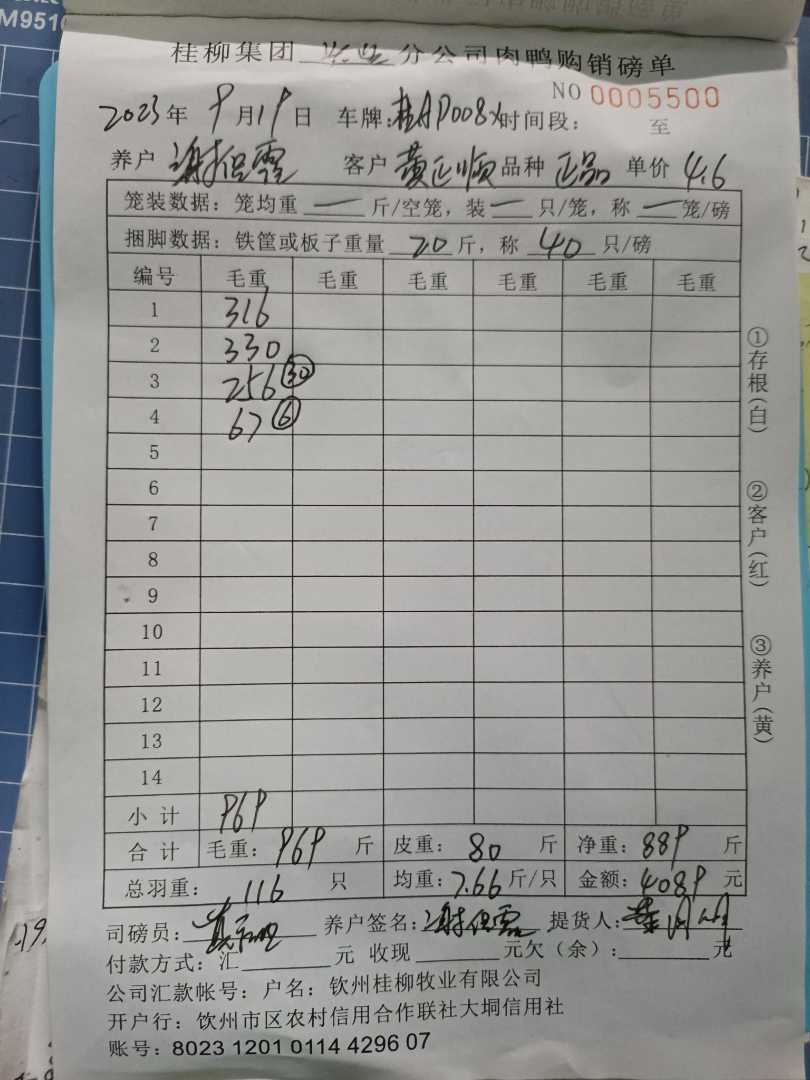 M951
桂柳集团 分公司肉鸭购销磅单
NO 0005500
2023年 9月19日 车牌:桂AD008X 时间段: 至
养户 谢 霞 客户 黄正顺 品种 正品 单价 4.6
笼装数据: 笼均重 一 斤/空笼, 装 一 只/笼, 称 一 笼/磅
捆脚数据: 铁筐或板子重量 20 斤, 称 40 只/磅
编号 毛重 毛重 毛重 毛重 毛重 毛重
1 316
2 330
3 256 30
4 67 6
5
6
7
8
9
10
11
12
13
14
小计 969
合计 毛重: 969 斤 皮重: 80 斤 净重: 889 斤
总羽重: 116 只 均重: 7.66 斤/只 金额: 4089 元
司磅员: 养户签名: 谢 霞 提货人:
付款方式: 汇 元 收现 元欠(余): 元
公司汇款帐号: 户名: 钦州桂柳牧业有限公司
开户行: 钦州市区农村信用合作联社大垌信用社
账号: 8023 1201 0114 4296 07
①存根(白)
②客户(红)
③养户(黄)